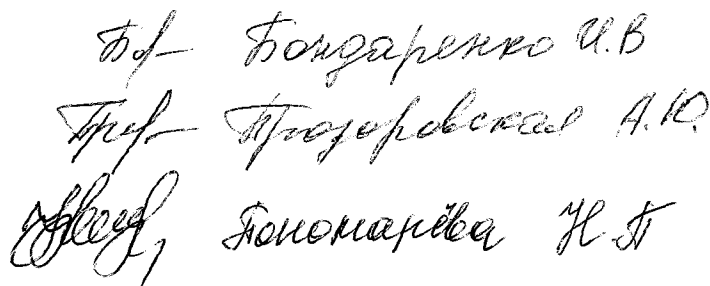 Бондаренко И.В
Прозоровская А.Ю.
Пономарёва Н.П